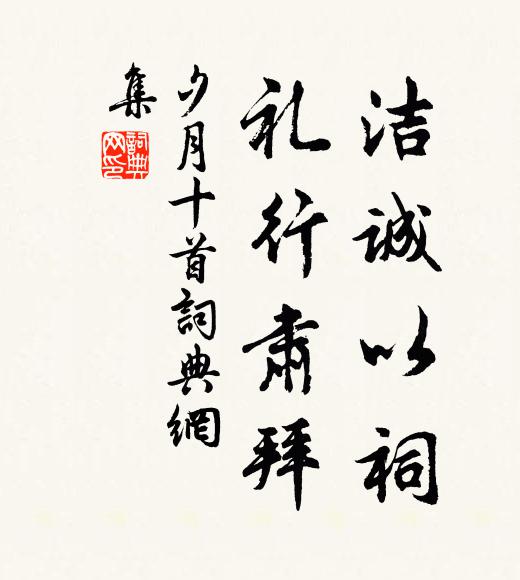 洁诚以祠
礼行肃拜
夕月十首詞典網
集
詞典
网印